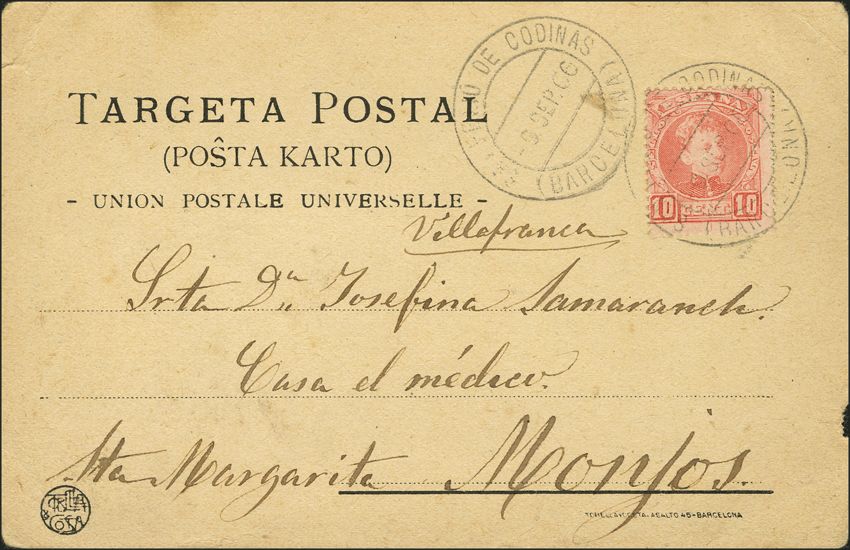 TARGETA POSTAL
(POŜTA KARTO)
- UNION POSTALE UNIVERSELLE -
DE CODINAS (BARCELONA)
-9 SEP. 06
ESPAÑA
10 CENT. 10
CODINAS
Villafranca
Srta Dª Josefina Samaranch.
Casa el médico.
Sta Margarita Monjos.
COSTA-ASALTO 45-BARCELONA